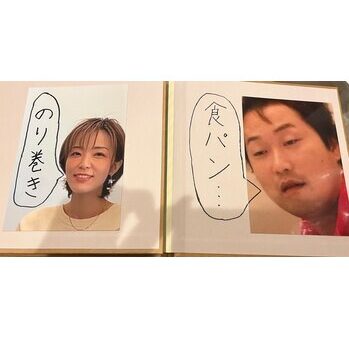 のり巻き
食パン…